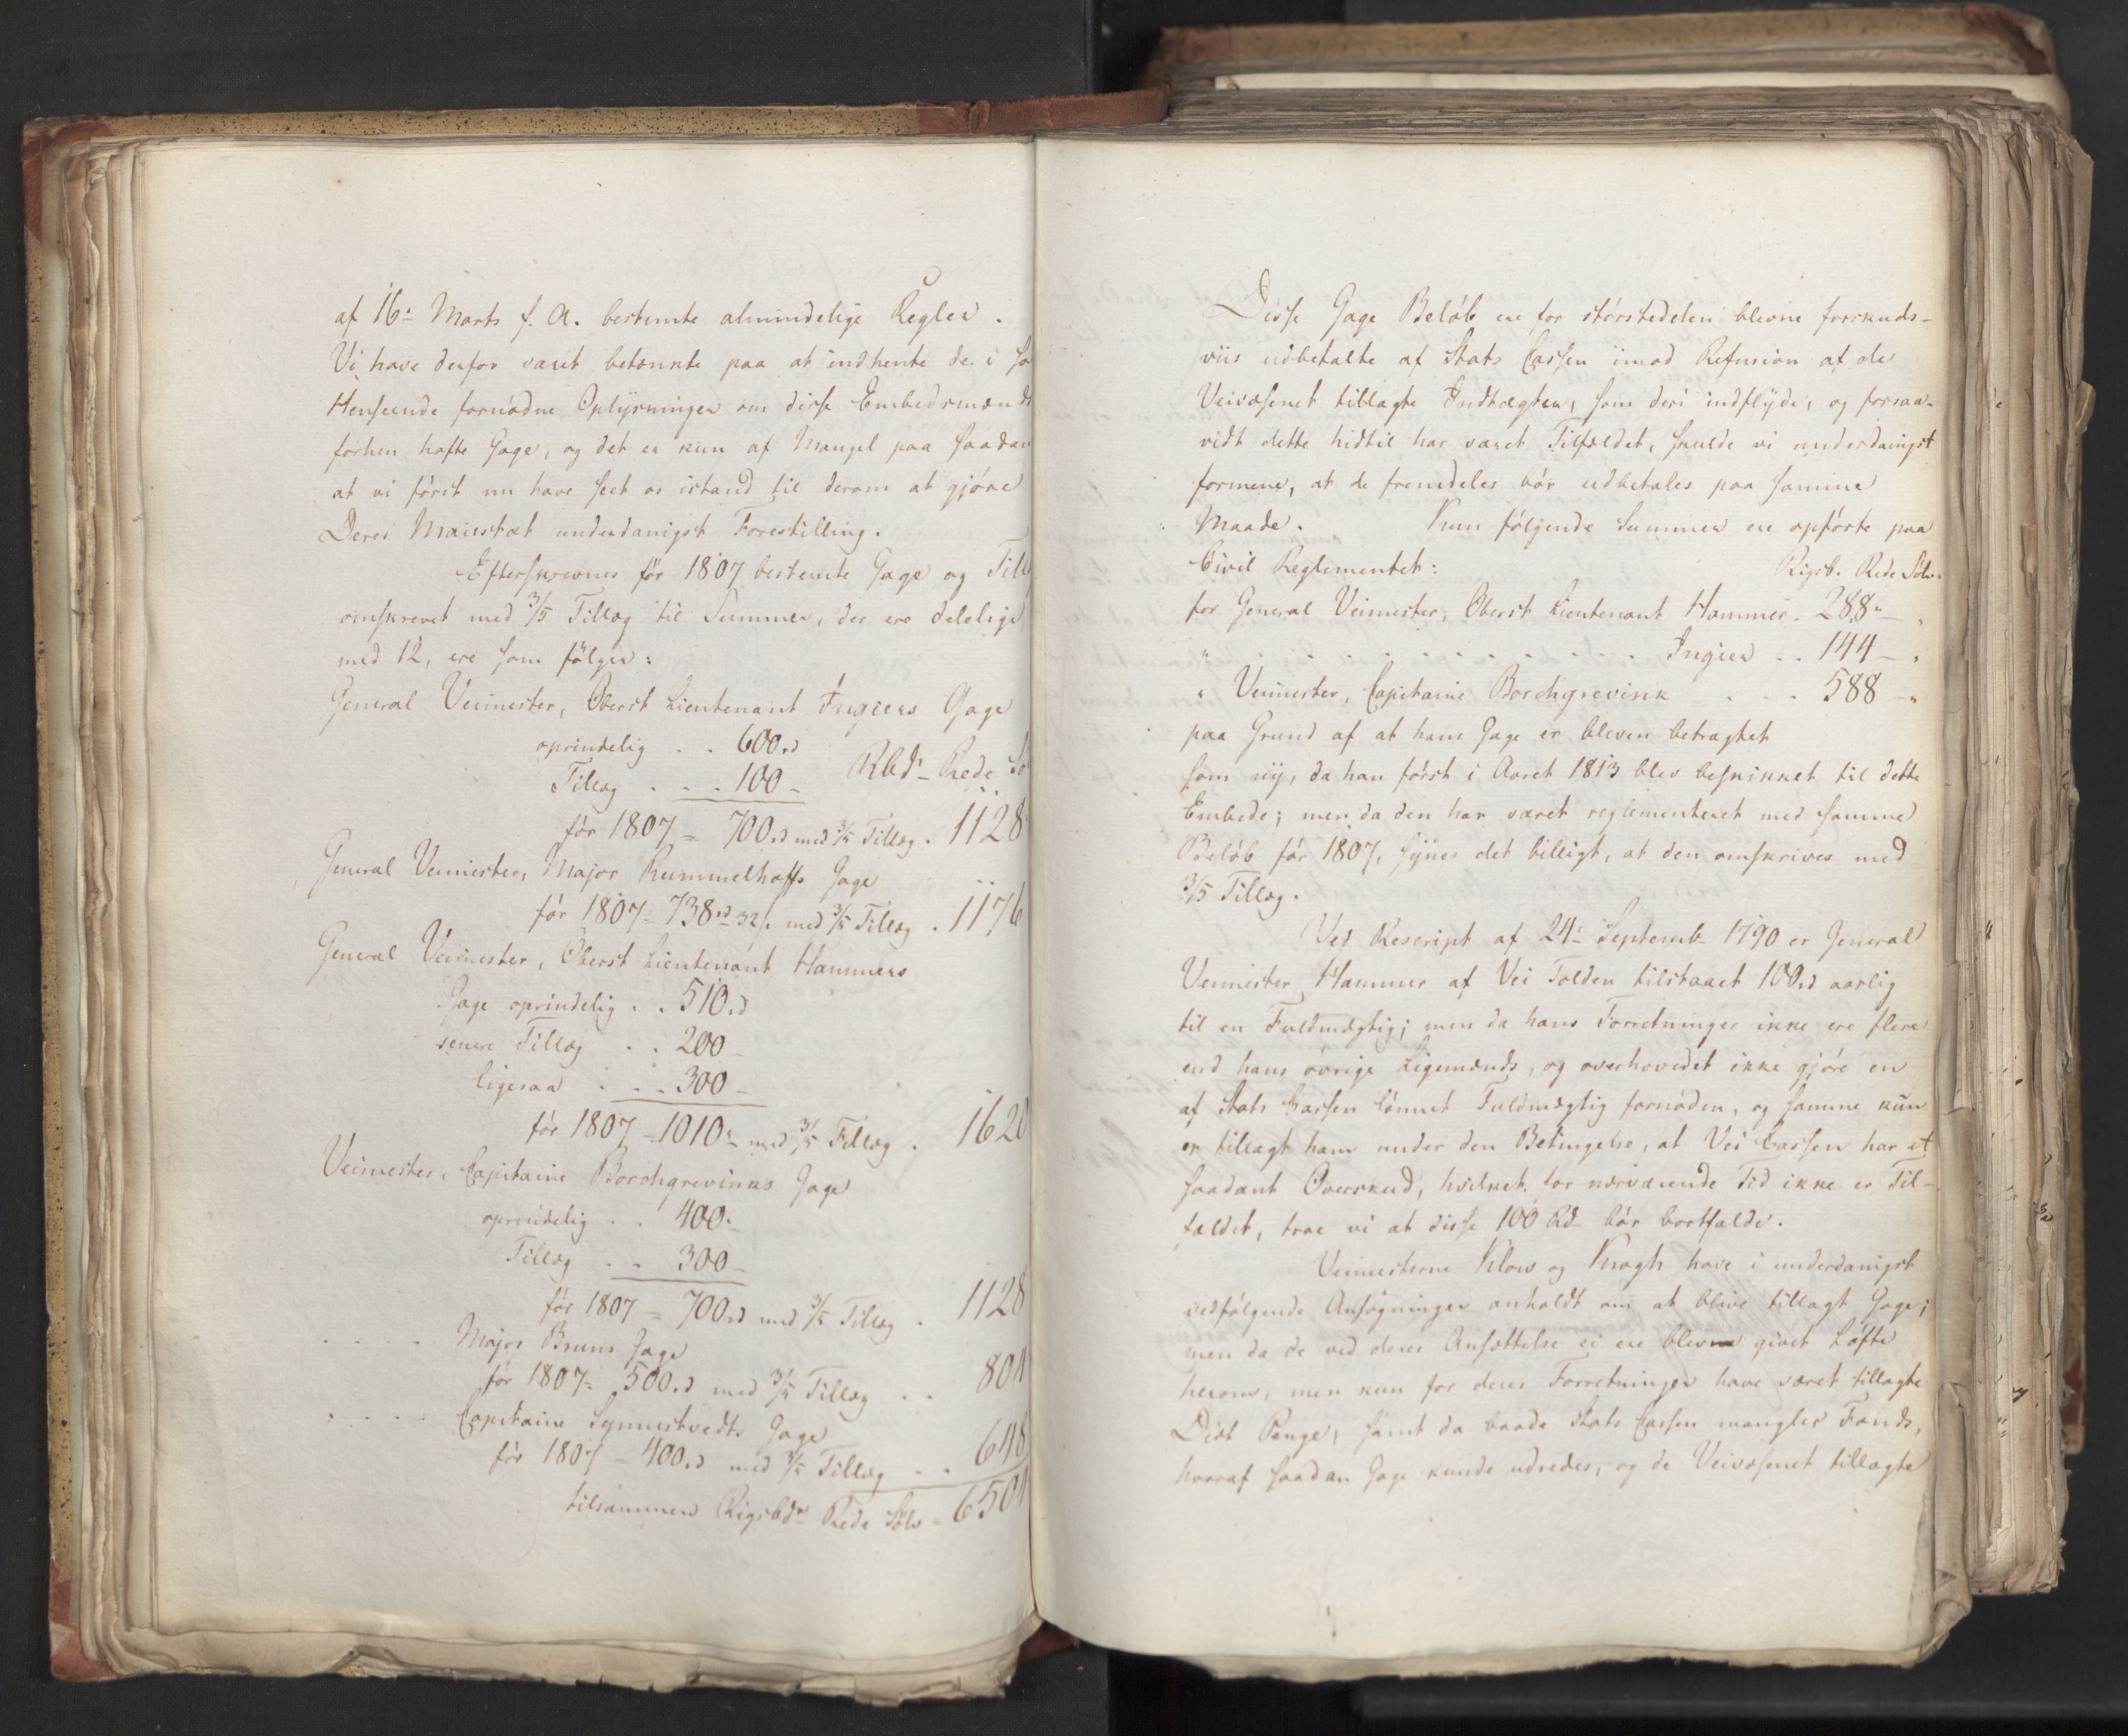 af 16. Marts f. A. bestemte almindelige Regler.
Vi have derfor været betænkte paa at indhente de i
Henseende fornødne Oplysninger om disse Embedsmænds
forhen hafte Gage, og det er kun af Mangel paa saadan
at vi først nu have seet os istand til derom at gjøre
Deres Maiestæt underdanigst Forestilling.
Efterskrevnes før 1807 bestemte Gage og Till
omskrevet med 3/5 Tillæg til Summer, der ere delelige
med 12, ere som følger:
General Veimester, Oberst Lieutenant Ingiers Gage
oprindelig . . 600rd
Tillæg . . . 100 -
Rbd. Rede
før 1807 = 700rd med 3/5 Tillæg . 1128
General Veimester, Major Rummelhoffs Gage
før 1807 - 738rd 32s. med 3/5 Tillæg . 1176
General Veimester, Oberst Lieutenant Hammers
Gage oprindelig . . 510rd
senere Tillæg . . 200
ligesaa . . . 300 -
før 1807 - 1010 - med 3/5 Tillæg . 1620
Veimester, Capitaine Borchgrevinks Gage
oprindelig . . 400.
Tillæg . . 300 -
før 1807 = 700rd med 3/5 Tillæg . 1128
. . . . Major Bruns Gage
før 1807 = 500rd med 3/5 Tillæg . . 804
. . . . Capitaine Synnestvedts Gage
før 1807 - 400rd med 3/5 Tillæg . . 648
tilsammen Rigsbdr Rede Sølv - 6504
Disse Gage Beløb ere for størstedelen blevne forskuds-
viis udbetalte af Stats Cassen imod Refusion af de
Veivæsenet tillagte Indtægter, som deri indflyde, og forsaa-
vidt dette hidtil har været Tilfældet, skulde vi underdanigst
formene, at de fremdeles bør udbetales paa samme
Maade. Kun følgende Summer ere opførte paa
Civil Reglementet: Rigsb. Rede Sølv.
for General Veimester, Oberst Lieutenant Hammer . 288 -
" . . . . . . . . . . . . Ingier . . 144 - "
" Veimester, Capitaine Borchgrevink . . . 588 - "
paa Grund af at hans Gage er bleven betragtet
som ny, da han først i Aaret 1813 blev beskikket til dette
Embede; men da den har været reglementeret med samme
Beløb før 1807, synes det billigt, at den omskrives med
3/5 Tillæg.
Ved Rescript af 24. Septemb. 1790 er General
Veimester Hammer af Vei Tolden tilstaaet 100rd aarlig
til en Fuldmægtig; men da hans Forretninger ikke ere flere
end hans øvrige Ligemænds, og overhovedet ikke gjøre en
af Stats Cassen lønnet Fuldmægtig fornøden, og samme kun
er tillagt ham under den Betingelse, at Vei Cassen har et
saadant Overskud, hvilket for nærværende Tid ikke er Til-
fældet, troe vi at disse 100 Rd bør bortfalde.
Veimesterne Klow og Kragh have i underdanigst
vedfølgende Ansøgninger anholdt om at blive tillagt Gage;
men da de ved deres Ansættelse ei ere blevne givet Løfte
herom, men kun for deres Forretninger have været tillagte
Diæt Penge, samt da baade Stats Cassen mangler Fonds,
hvoraf saadan Gage kunde udredes, og de Veivæsenet tillagte